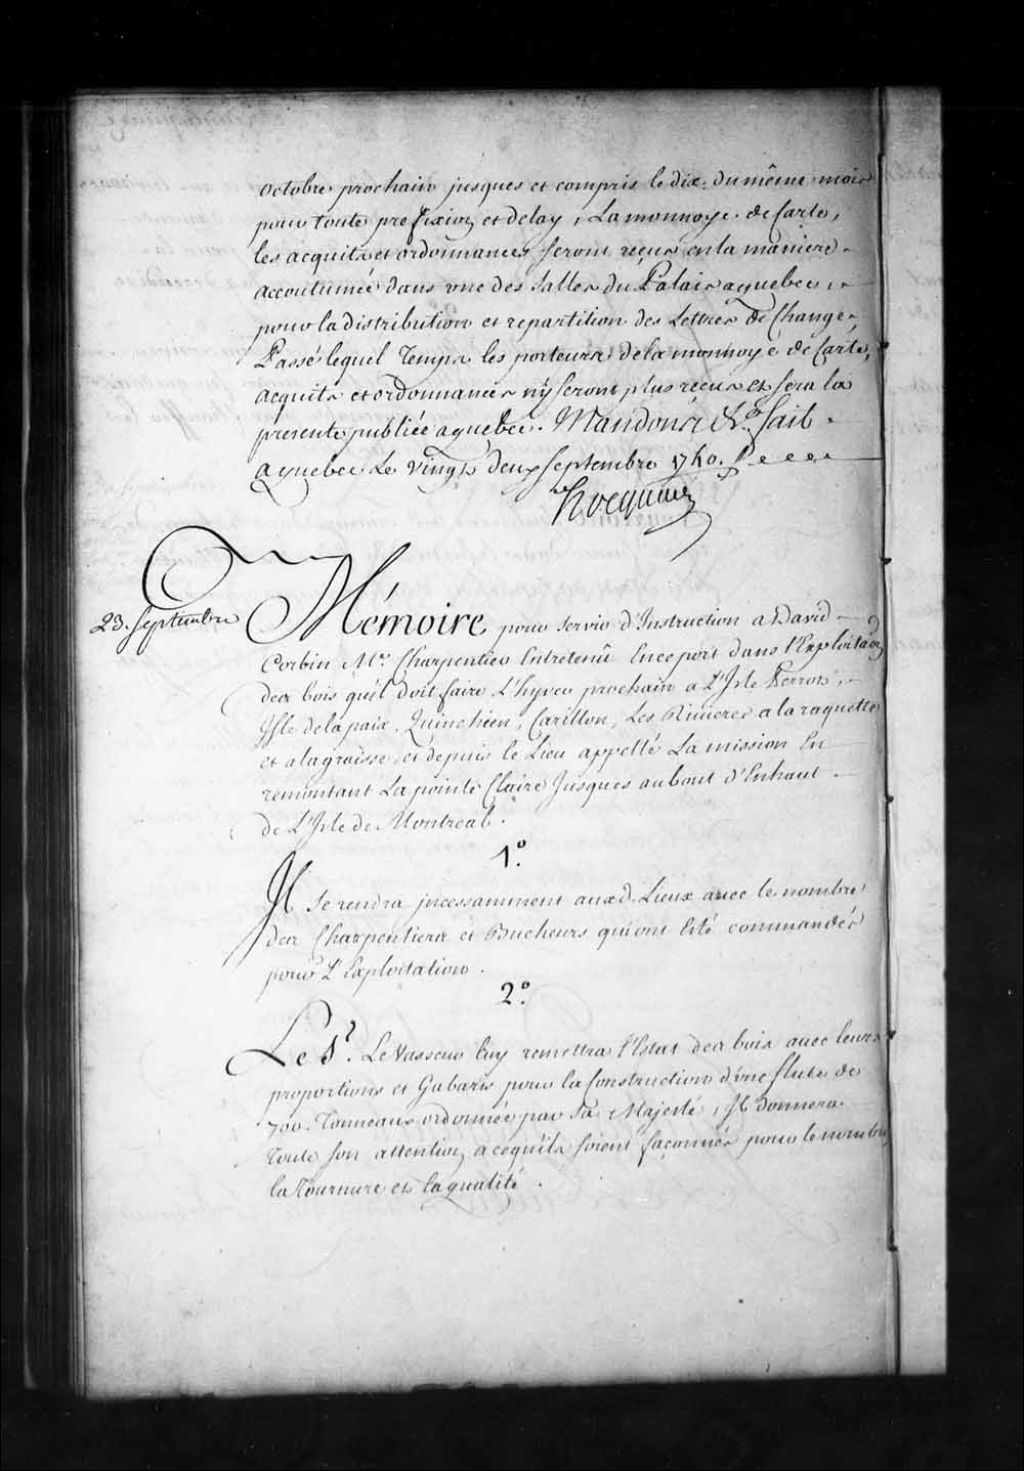 octobre prochain jusques et compris le dix. du même mois
pour toute prefixion et delay, La monnoye de Carte,
les acquits et ordonnances seront reçus en la maniere
accoutumée dans une des Salles du Palais a quebec,
pour la distribution et repartition des Lettres de Change
Passé lequel Temps les porteurs de la monnoye de Carte,
acquits et ordonnances n'y seront plus recus et sera la
presente publiée a quebec. Mandons &ca. fait
a quebec Le vingt deux septembre 1740.
Hocquart
23. Septembre
Mémoire pour servir d'Instruction a David
Corbin Me. Charpentier Entretenû En ce port dans l'Exploitaon
des bois qu'il doit faire L'hyver prochain a L'Isle Perrot,
Isle de la paix, Quinchien, Carillon, Les Rivieres a la raquette
et a la graisse, et depuis le Lieu appellé La mission En
remontant La pointe Claire Jusques au bout d'Enhaut
de L'Isle de Montreal.
1o.
Il se rendra incessamment auxd. Lieux avec le nombre
des Charpentiers et Bucheurs qui ont Eté commandés
pour L'Exploitation.
2o.
Le Sr. Levasseur luy remettra l'Estat des bois avec leurs
proportions et Gabaris pour la Construction d'une flute de
700. Tonneaux ordonnée par Sa Majesté, Il donnera
toute son attention a ce qu'ils soient façonnés pour le nombre,
la Tournure et la qualité.